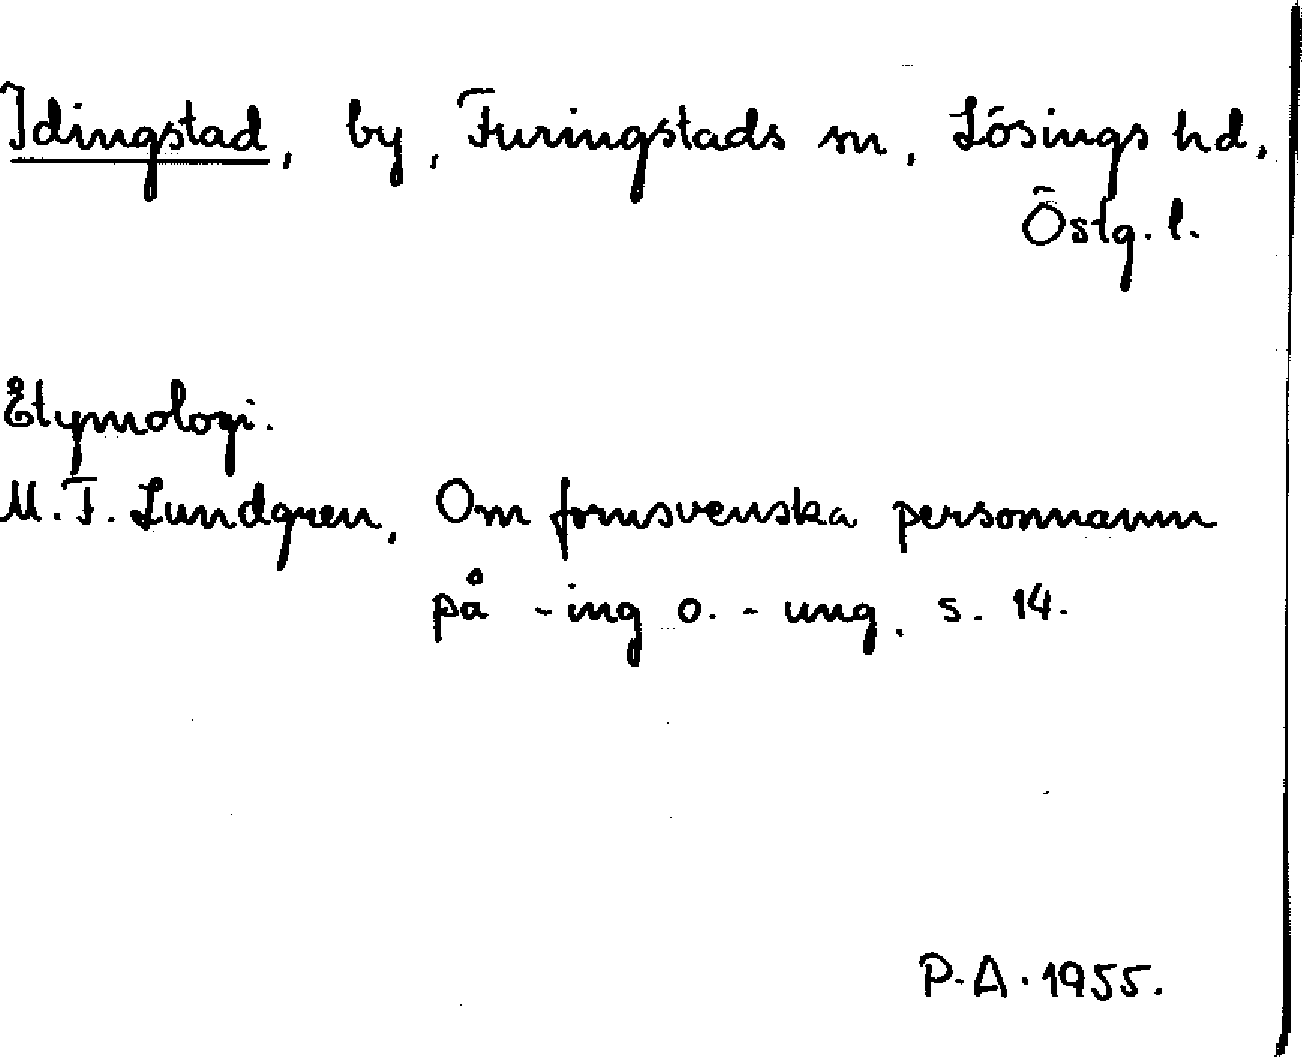 Idingstad, by, Furingstads sn, Lösings hd,
Östg. l.
Etymologi.
M. F. Lundgren, Om fornsvenska personnamn
på -ing o. -ung, s. 14.
P.A. 1955.